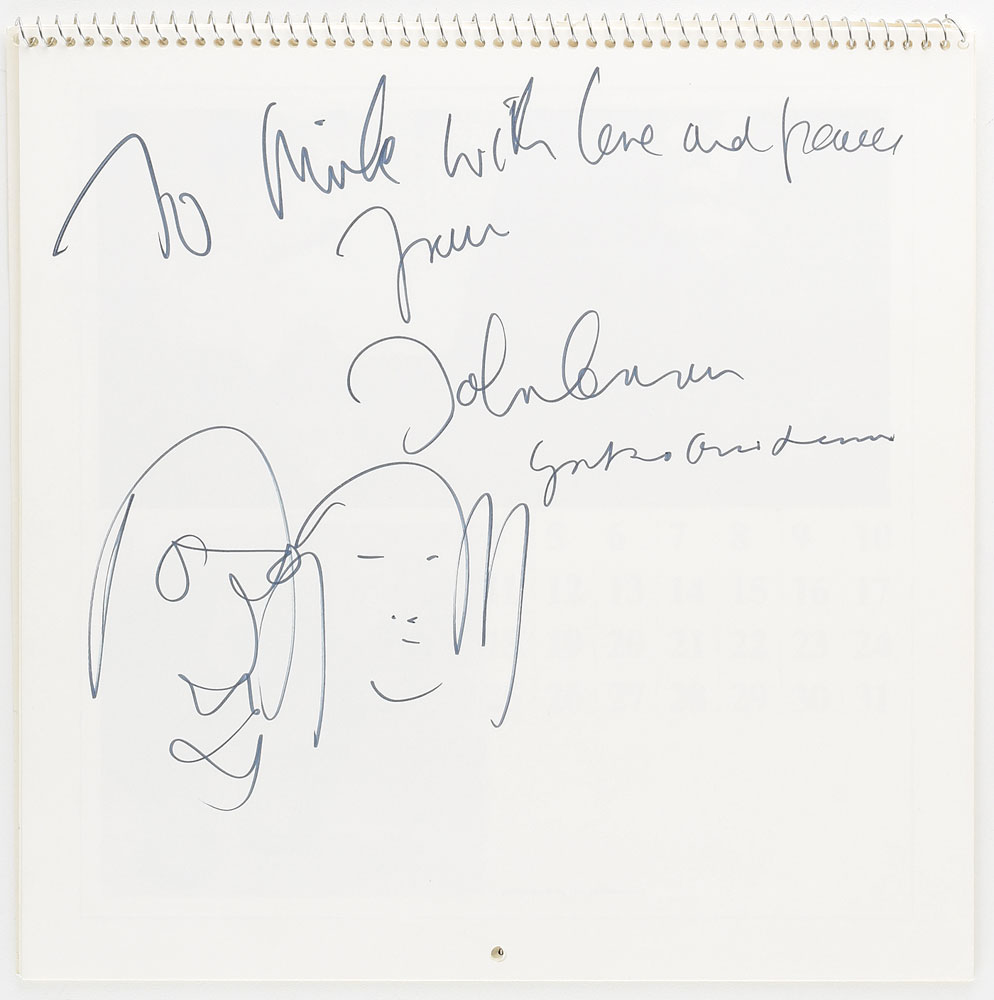 To Mike with love and peace
from
John Lennon
Yoko Ono Lennon
5 6 7 8 9 10
11 12 13 14 15 16 17
19 20 21 22 23 24
26 27 28 29 30 31